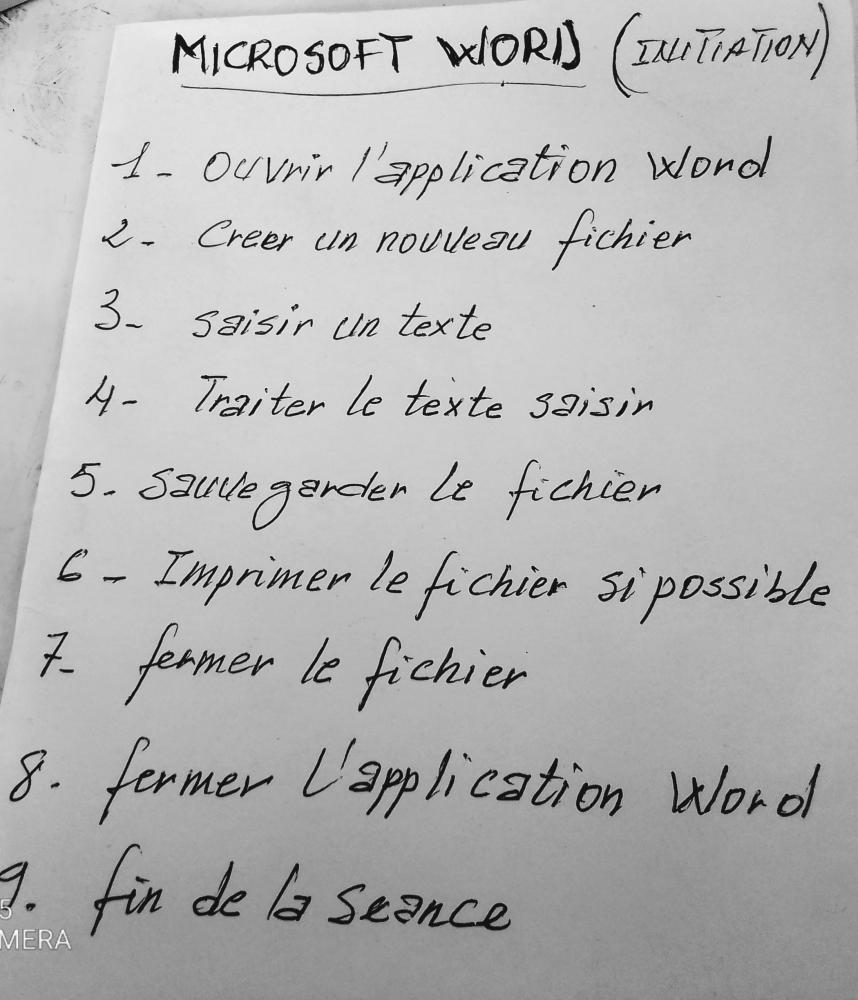 MICROSOFT WORD (INITIATION)
1- Ouvrir l'application Word
2- Creer un nouveau fichier
3- saisir un texte
4- Traiter le texte saisir
5. Sauvegarder le fichier
6- Imprimer le fichier si possible
7- fermer le fichier
8. fermer l'application Word
9. fin de la seance
5
MERA